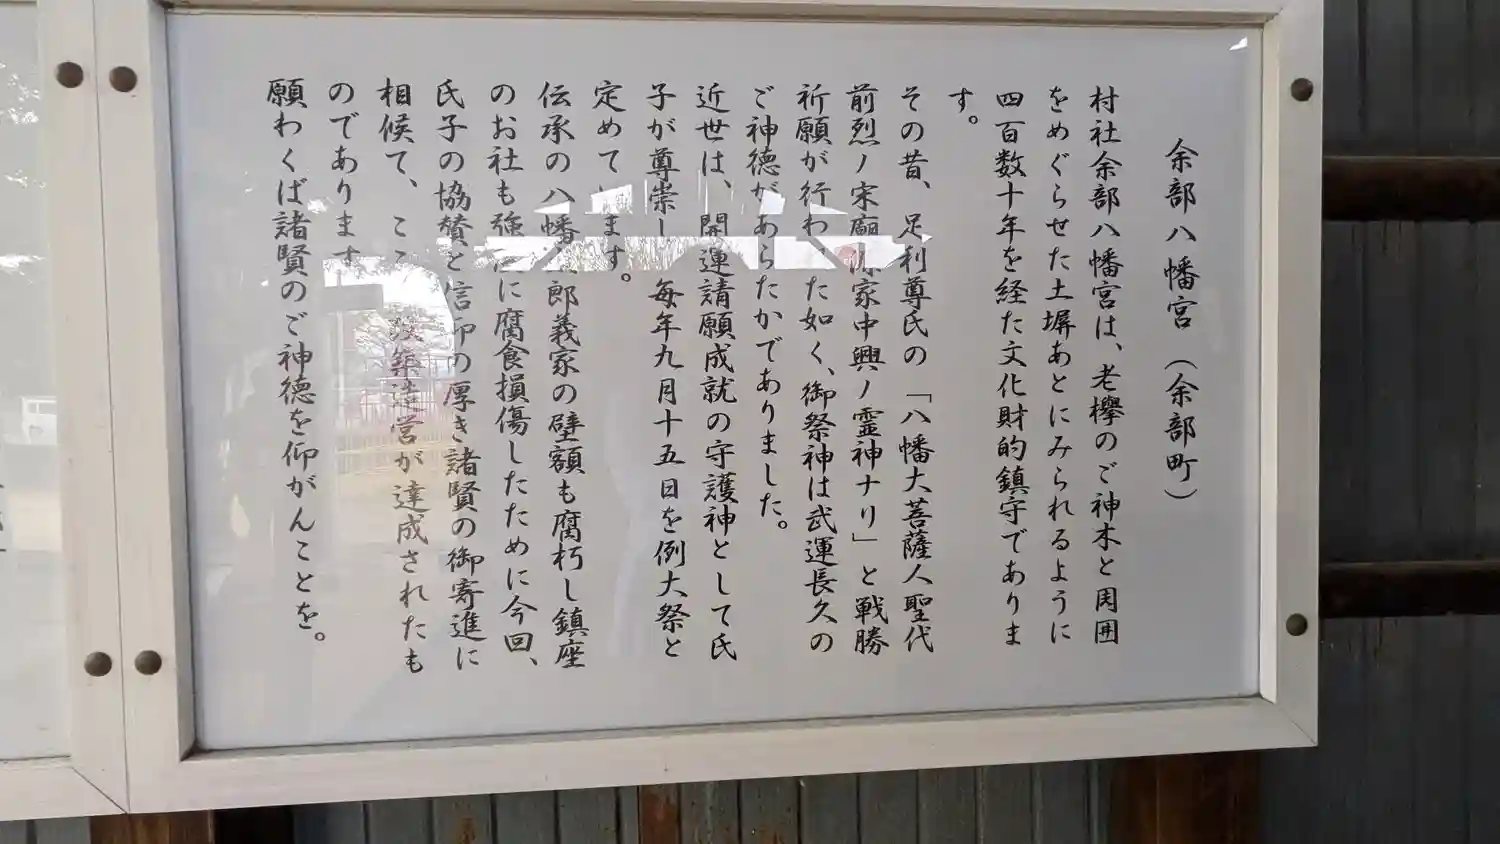 余部八幡宮（余部町）
村社余部八幡宮は、老欅のご神木と周囲
をめぐらせた土塀あとにみられるように
四百数十年を経た文化財的鎮守でありま
す。
その昔、足利尊氏の「八幡大菩薩人聖代
前烈ノ宋廟 家中興ノ霊神ナリ」と戦勝
祈願が行わ た如く、御祭神は武運長久の
ご神徳があらたかでありました。
近世は、開運請願成就の守護神として氏
子が尊崇し 毎年九月十五日を例大祭と
定めています。
伝承の八幡 郎義家の壁額も腐朽し鎮座
のお社も強 に腐食損傷したために今回、
氏子の協賛と信仰の厚き諸賢の御寄進に
相候て、ここ 改築造営が達成されたも
のであります
願わくば諸賢のご神徳を仰がんことを。